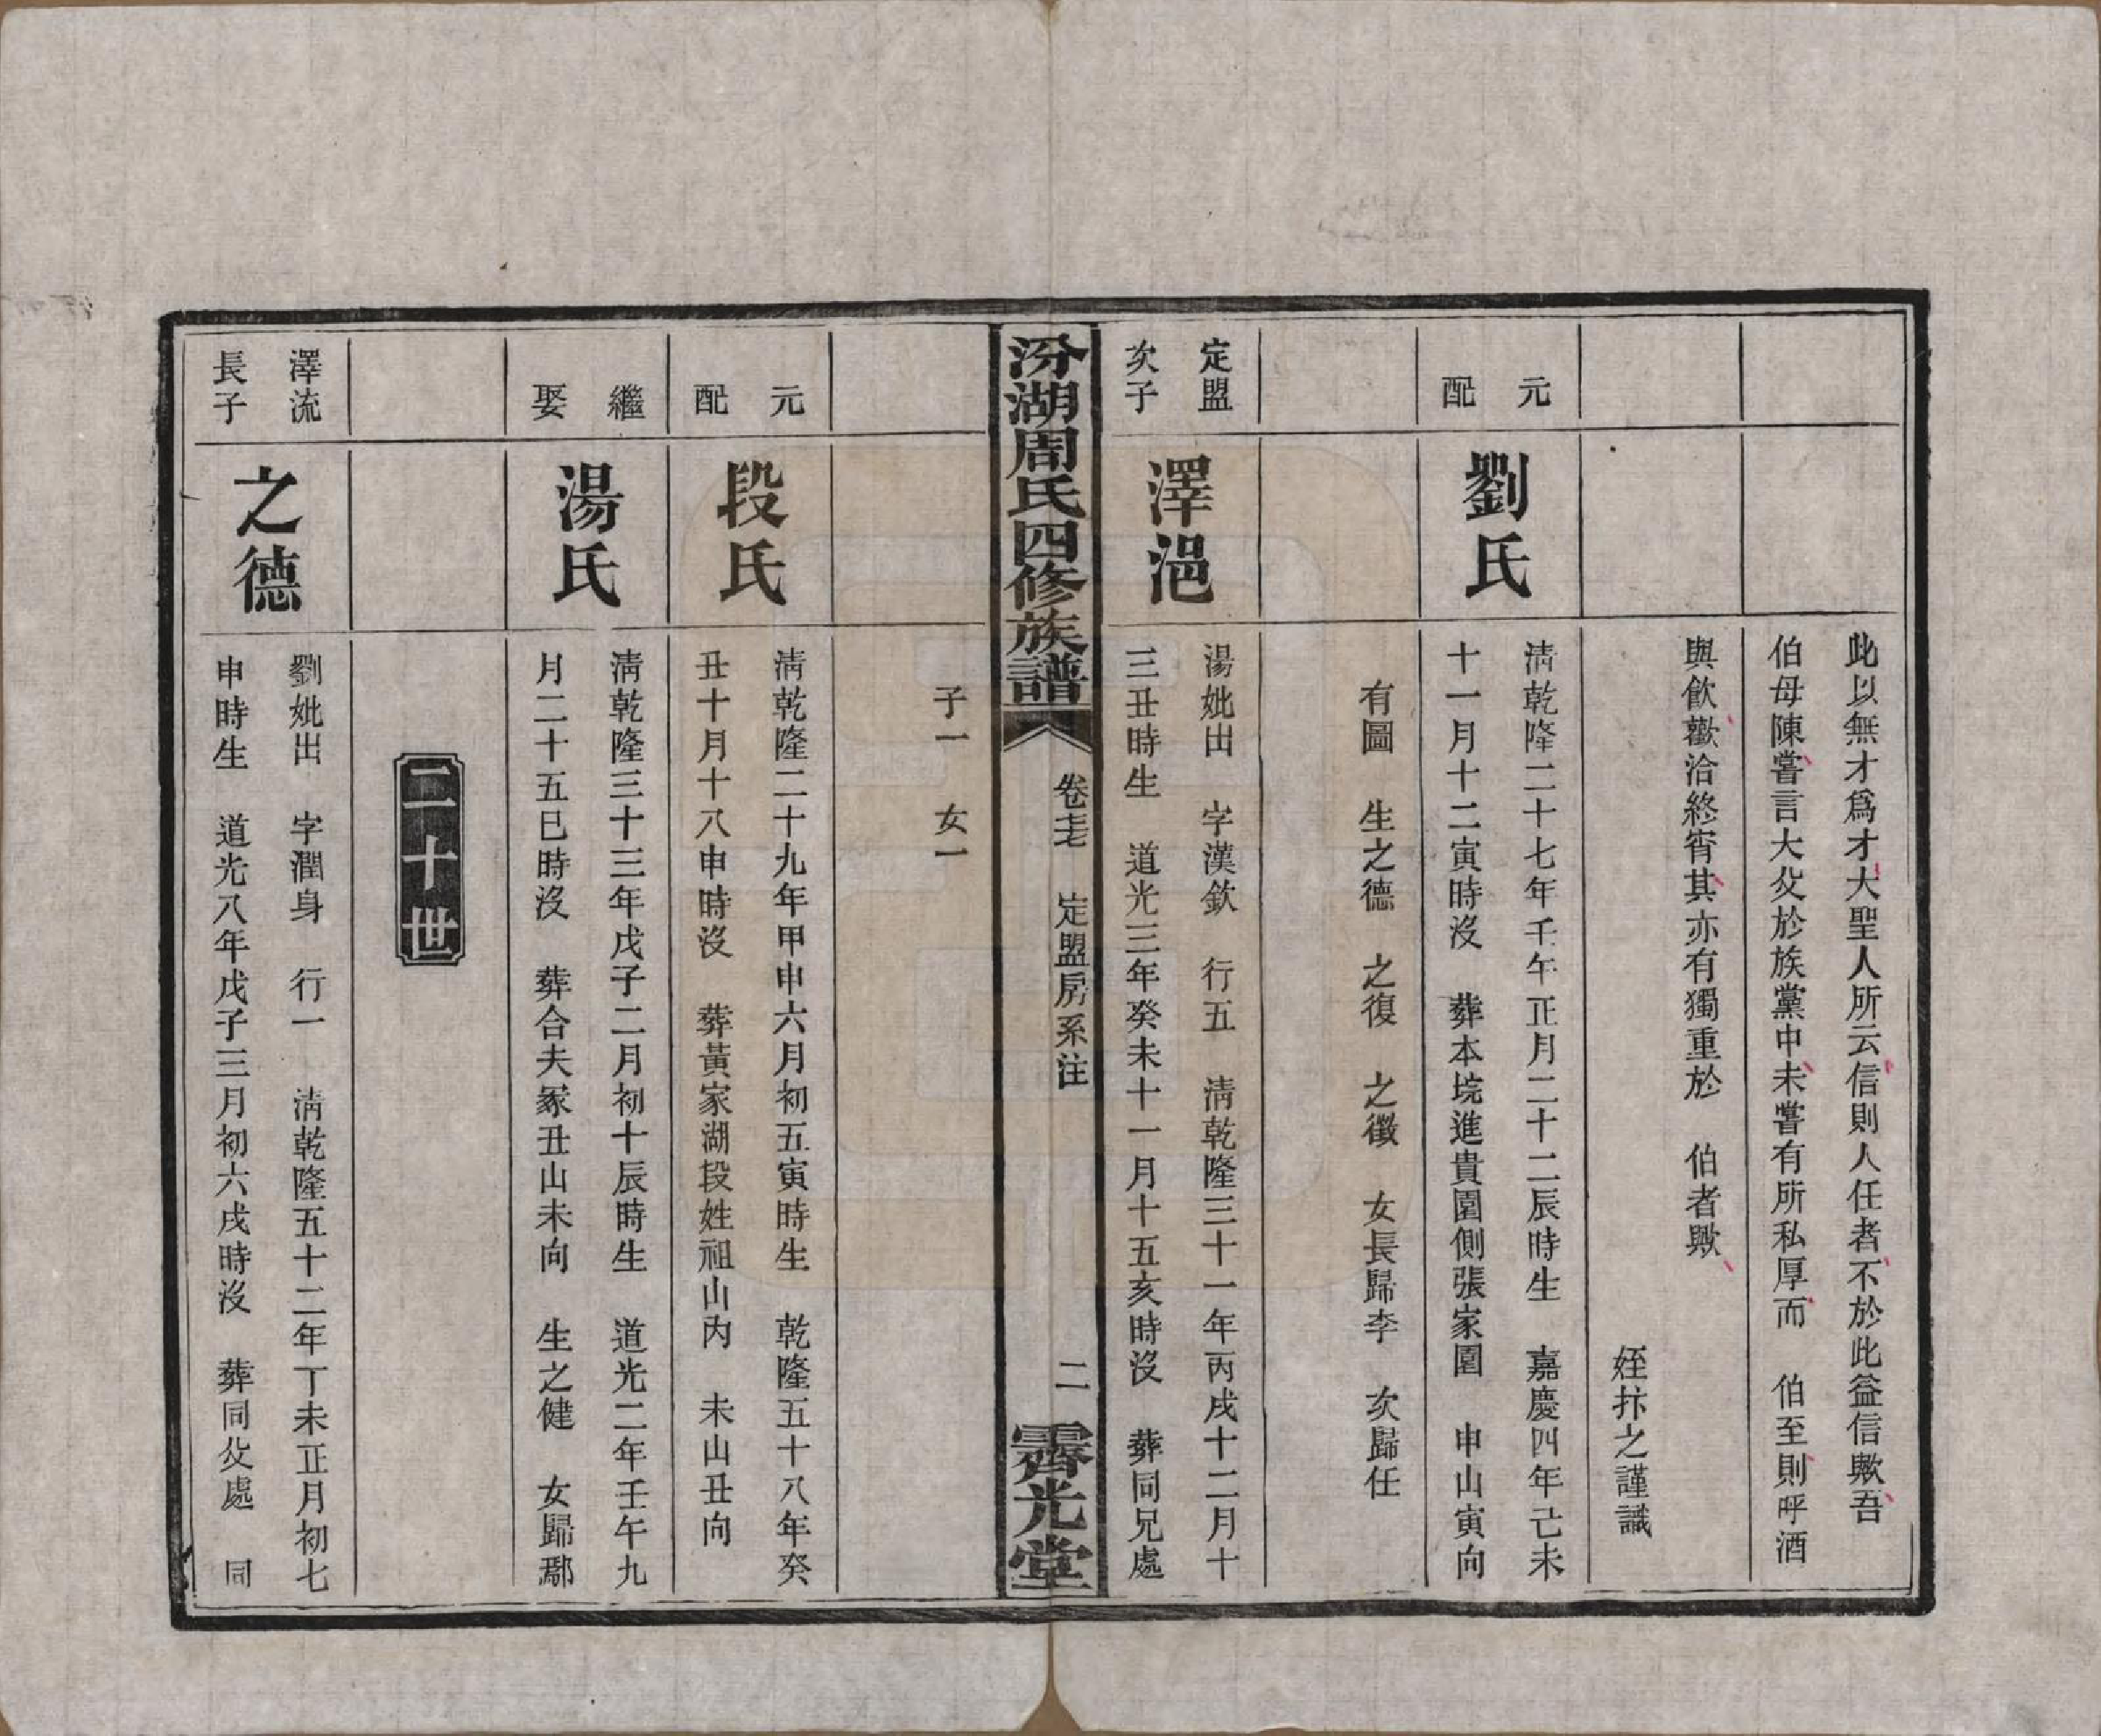 此以無才爲才大聖人所云信則人任者不於此益信歟吾
伯母陳嘗言大父於族黨中未嘗有所私厚而 伯至則呼酒
與飲歡洽終宵其亦有獨重於 伯者歟
姪抃之謹識
元配
劉氏
清乾隆二十七年壬午正月二十二辰時生 嘉慶四年己未
十一月十二寅時沒 葬本垸進貴園側張家園 申山寅向
有圖 生之德 之復 之徵 女長歸李 次歸任
定盟次子
澤浥
湯妣出 字漢欽 行五 清乾隆三十一年丙戌十二月十
三丑時生 道光三年癸未十一月十五亥時沒 葬同兄處
汾湖周氏四修族譜
卷 定盟房系注
二
霽光堂
子一 女一
元配
段氏
清乾隆二十九年甲申六月初五寅時生 乾隆五十八年癸
丑十月十八申時沒 葬黃家湖段姓祖山內 未山丑向
繼娶
湯氏
清乾隆三十三年戊子二月初十辰時生 道光二年壬午九
月二十五巳時沒 葬合夫冢丑山未向 生之健 女歸鄢
二十世
澤流長子
之德
劉妣出 字潤身 行一 清乾隆五十二年丁未正月初七
申時生 道光八年戊子三月初六戌時沒 葬同父處 同